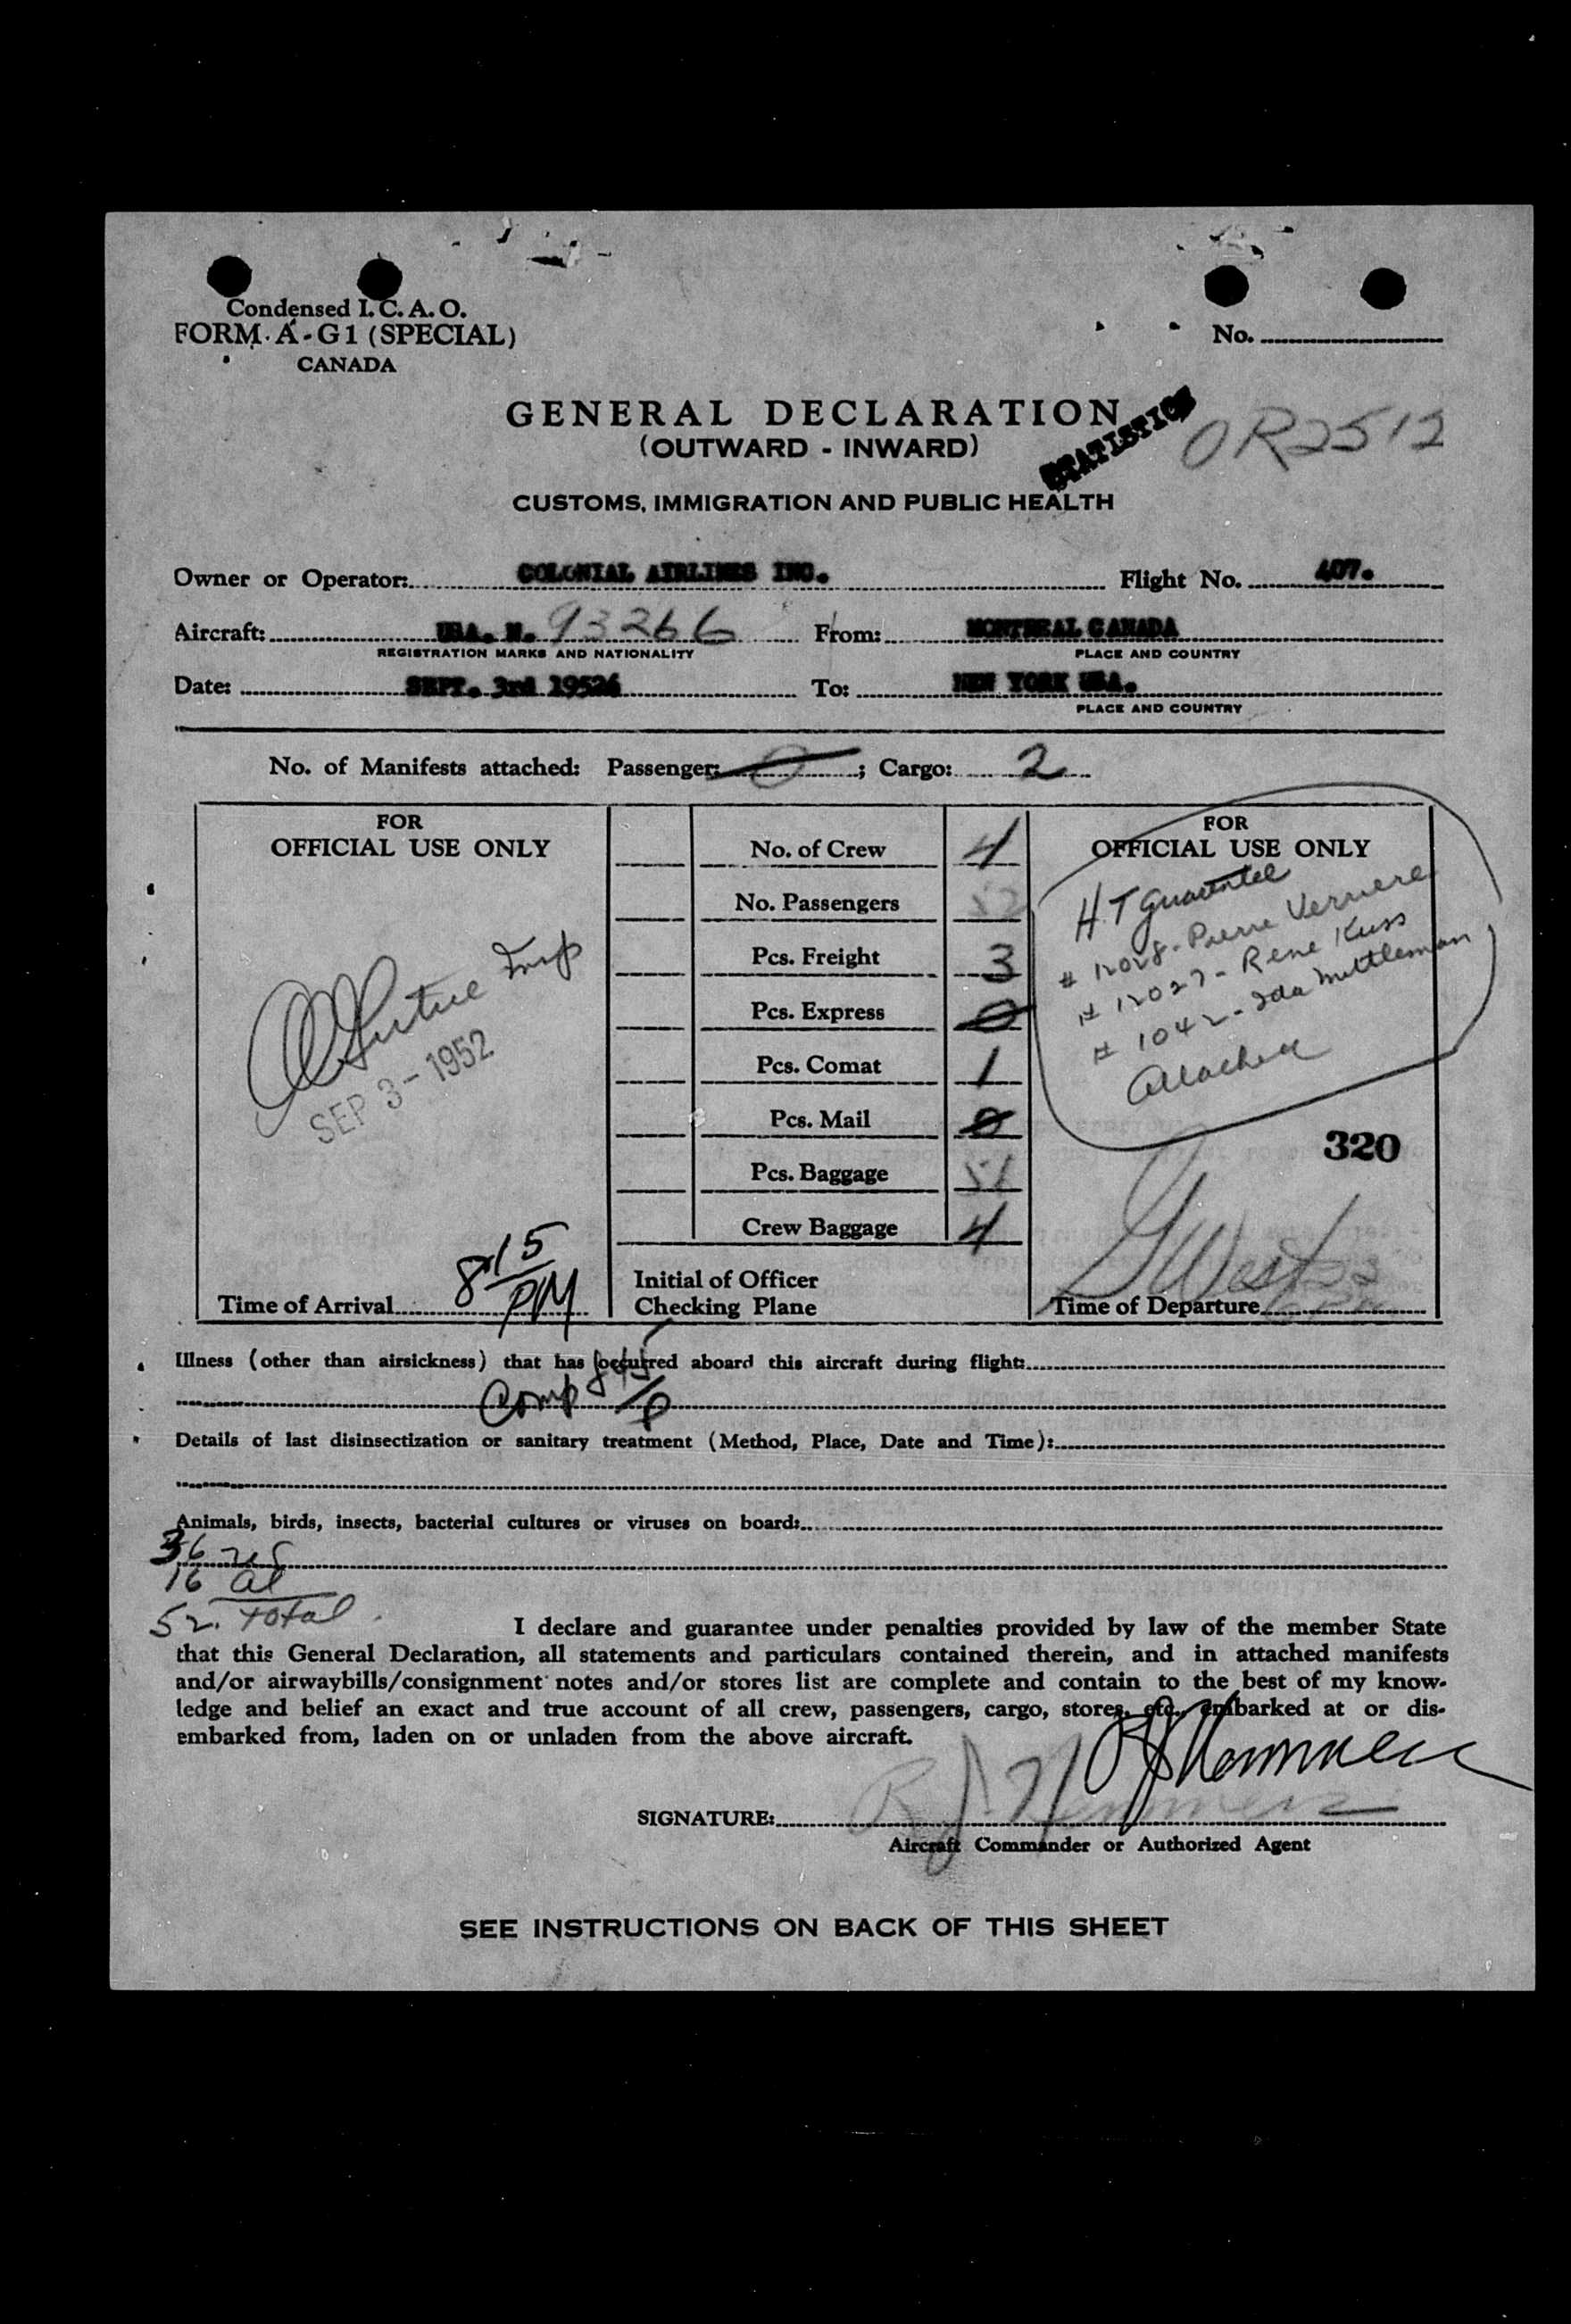 Condensed I. C. A. O.
FORM A-G1 (SPECIAL)
CANADA
No.
GENERAL DECLARATION
(OUTWARD - INWARD)
STATISTICS
OR2512
CUSTOMS, IMMIGRATION AND PUBLIC HEALTH
Owner or Operator: COLONIAL AIRLINES INC. Flight No. 407.
Aircraft: USA. N. 93266 From: MONTREAL CANADA
REGISTRATION MARKS AND NATIONALITY PLACE AND COUNTRY
Date: SEPT. 3rd 1952 To: NEW YORK USA.
PLACE AND COUNTRY
No. of Manifests attached: Passenger: 0 ; Cargo: 2
FOR
OFFICIAL USE ONLY
Insp
SEP 3 - 1952
Time of Arrival 8 15 PM
No. of Crew 4
No. Passengers 52
Pcs. Freight 3
Pcs. Express 0
Pcs. Comat 1
Pcs. Mail 0
Pcs. Baggage 51
Crew Baggage 4
Initial of Officer
Checking Plane
FOR
OFFICIAL USE ONLY
H.T guarantee
# 12028 - Pierre Verniere
# 12027 - Rene Kuss
# 1042 - Ida Mittleman
attached
320
G West
Time of Departure
Illness (other than airsickness) that has occurred aboard this aircraft during flight:
Comp 845 P
Details of last disinsectization or sanitary treatment (Method, Place, Date and Time):
Animals, birds, insects, bacterial cultures or viruses on board:
36 us
16 al
52. total
I declare and guarantee under penalties provided by law of the member State
that this General Declaration, all statements and particulars contained therein, and in attached manifests
and/or airwaybills/consignment notes and/or stores list are complete and contain to the best of my know-
ledge and belief an exact and true account of all crew, passengers, cargo, stores, etc., embarked at or dis-
embarked from, laden on or unladen from the above aircraft.
SIGNATURE: R J Hemmen
Aircraft Commander or Authorized Agent
SEE INSTRUCTIONS ON BACK OF THIS SHEET